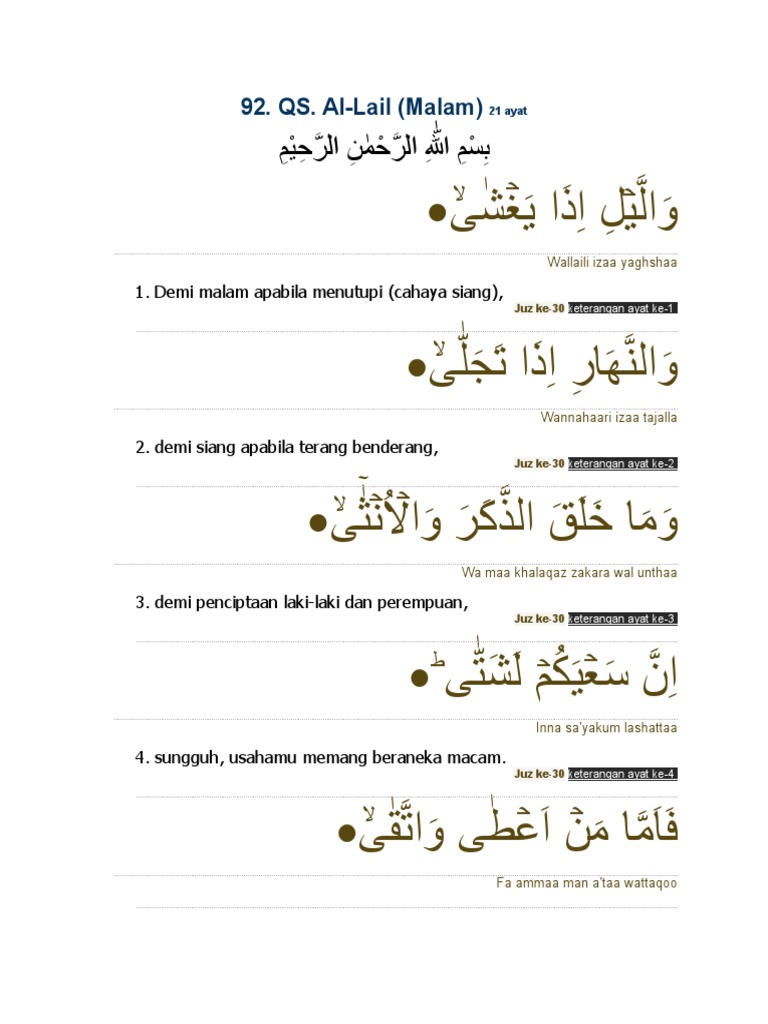 92. QS. Al-Lail (Malam) 21 ayat
بِسْمِ اللّٰهِ الرَّحْمٰنِ الرَّحِيْمِ
وَالَّيۡلِ اِذَا يَغۡشٰىۙ‏●
Wallaili izaa yaghshaa
1. Demi malam apabila menutupi (cahaya siang),
Juz ke-30 keterangan ayat ke-1
وَالنَّهَارِ اِذَا تَجَلّٰىۙ‏●
Wannahaari izaa tajalla
2. demi siang apabila terang benderang,
Juz ke-30 keterangan ayat ke-2
وَمَا خَلَقَ الذَّكَرَ وَالۡاُنۡثٰٓىۙ‏●
Wa maa khalaqaz zakara wal unthaa
3. demi penciptaan laki-laki dan perempuan,
Juz ke-30 keterangan ayat ke-3
اِنَّ سَعۡيَكُمۡ لَشَتّٰىؕ‏●
Inna sa'yakum lashattaa
4. sungguh, usahamu memang beraneka macam.
Juz ke-30 keterangan ayat ke-4
فَاَمَّا مَنۡ اَعۡطٰى وَاتَّقٰىۙ‏●
Fa ammaa man a'taa wattaqoo